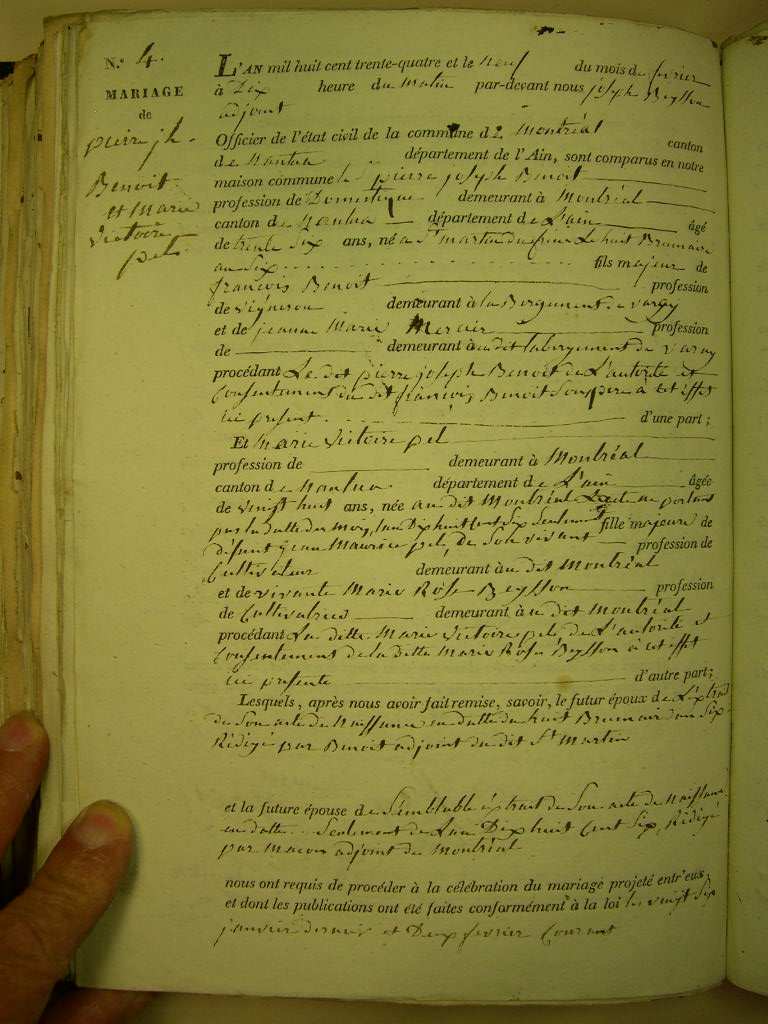 N.º 4.
MARIAGE
de
pierre jh.
Benoit
et Marie
victoire
pel.
L'AN mil huit cent trente-quatre et le neuf du mois de février
à Dix heure du Matin par-devant nous joseph Beysson
adjoint
Officier de l'état civil de la commune de Montréal canton
de Nantua département de l'Ain, sont comparus en notre
maison commune le pierre joseph Benoit
profession de Domestique demeurant à Montréal
canton de Nantua département de L'ain âgé
de trente six ans, né à St martin du frene Le huit Brumaire
an Six fils majeur de
francois Benoit profession
de vigneron demeurant à la Bergement de varey
et de jeanne Marie Mercier profession
de demeurant au dit labergement de varey
procédant Le dit pierre joseph Benoit de L'autorité et
Consentement du dit francois Benoit Son pere à cet effet
ici présent. d'une part;
Et Marie victoire pel
profession de demeurant à Montréal
canton de Nantua département de L'ain âgée
de vingt huit ans, née au dit Montréal acte ne portant
pas la datte du mois, lan Dix huit Cent Six Seulement fille majeure de
défunt jean Maurice pel, de Son vivant profession de
Cultivateur demeurant au dit Montréal
et de vivante Marie Rose Beysson profession
de Cultivatrice demeurant au dit Montréal
procédant La ditte Marie victoire pel, de L'autorité et
Consentement de la ditte Marie Rose Beysson à cet effet
ici présente d'autre part;
Lesquels, après nous avoir fait remise, savoir, le futur époux de L'extrait
de Son acte de Naissance en datte du huit Brumaire an Six
Rédigé par Benoit adjoint du dit St Martin
et la future épouse de Semblable extrait de Son acte de Naissance
en datte Seulement de Lan Dix huit Cent Six, Rédigé
par adjoint de Montréal
nous ont requis de procéder à la célébration du mariage projeté entr'eux,
et dont les publications ont été faites conformément à la loi les vingt Six
janvier dernier et Deux février Courant